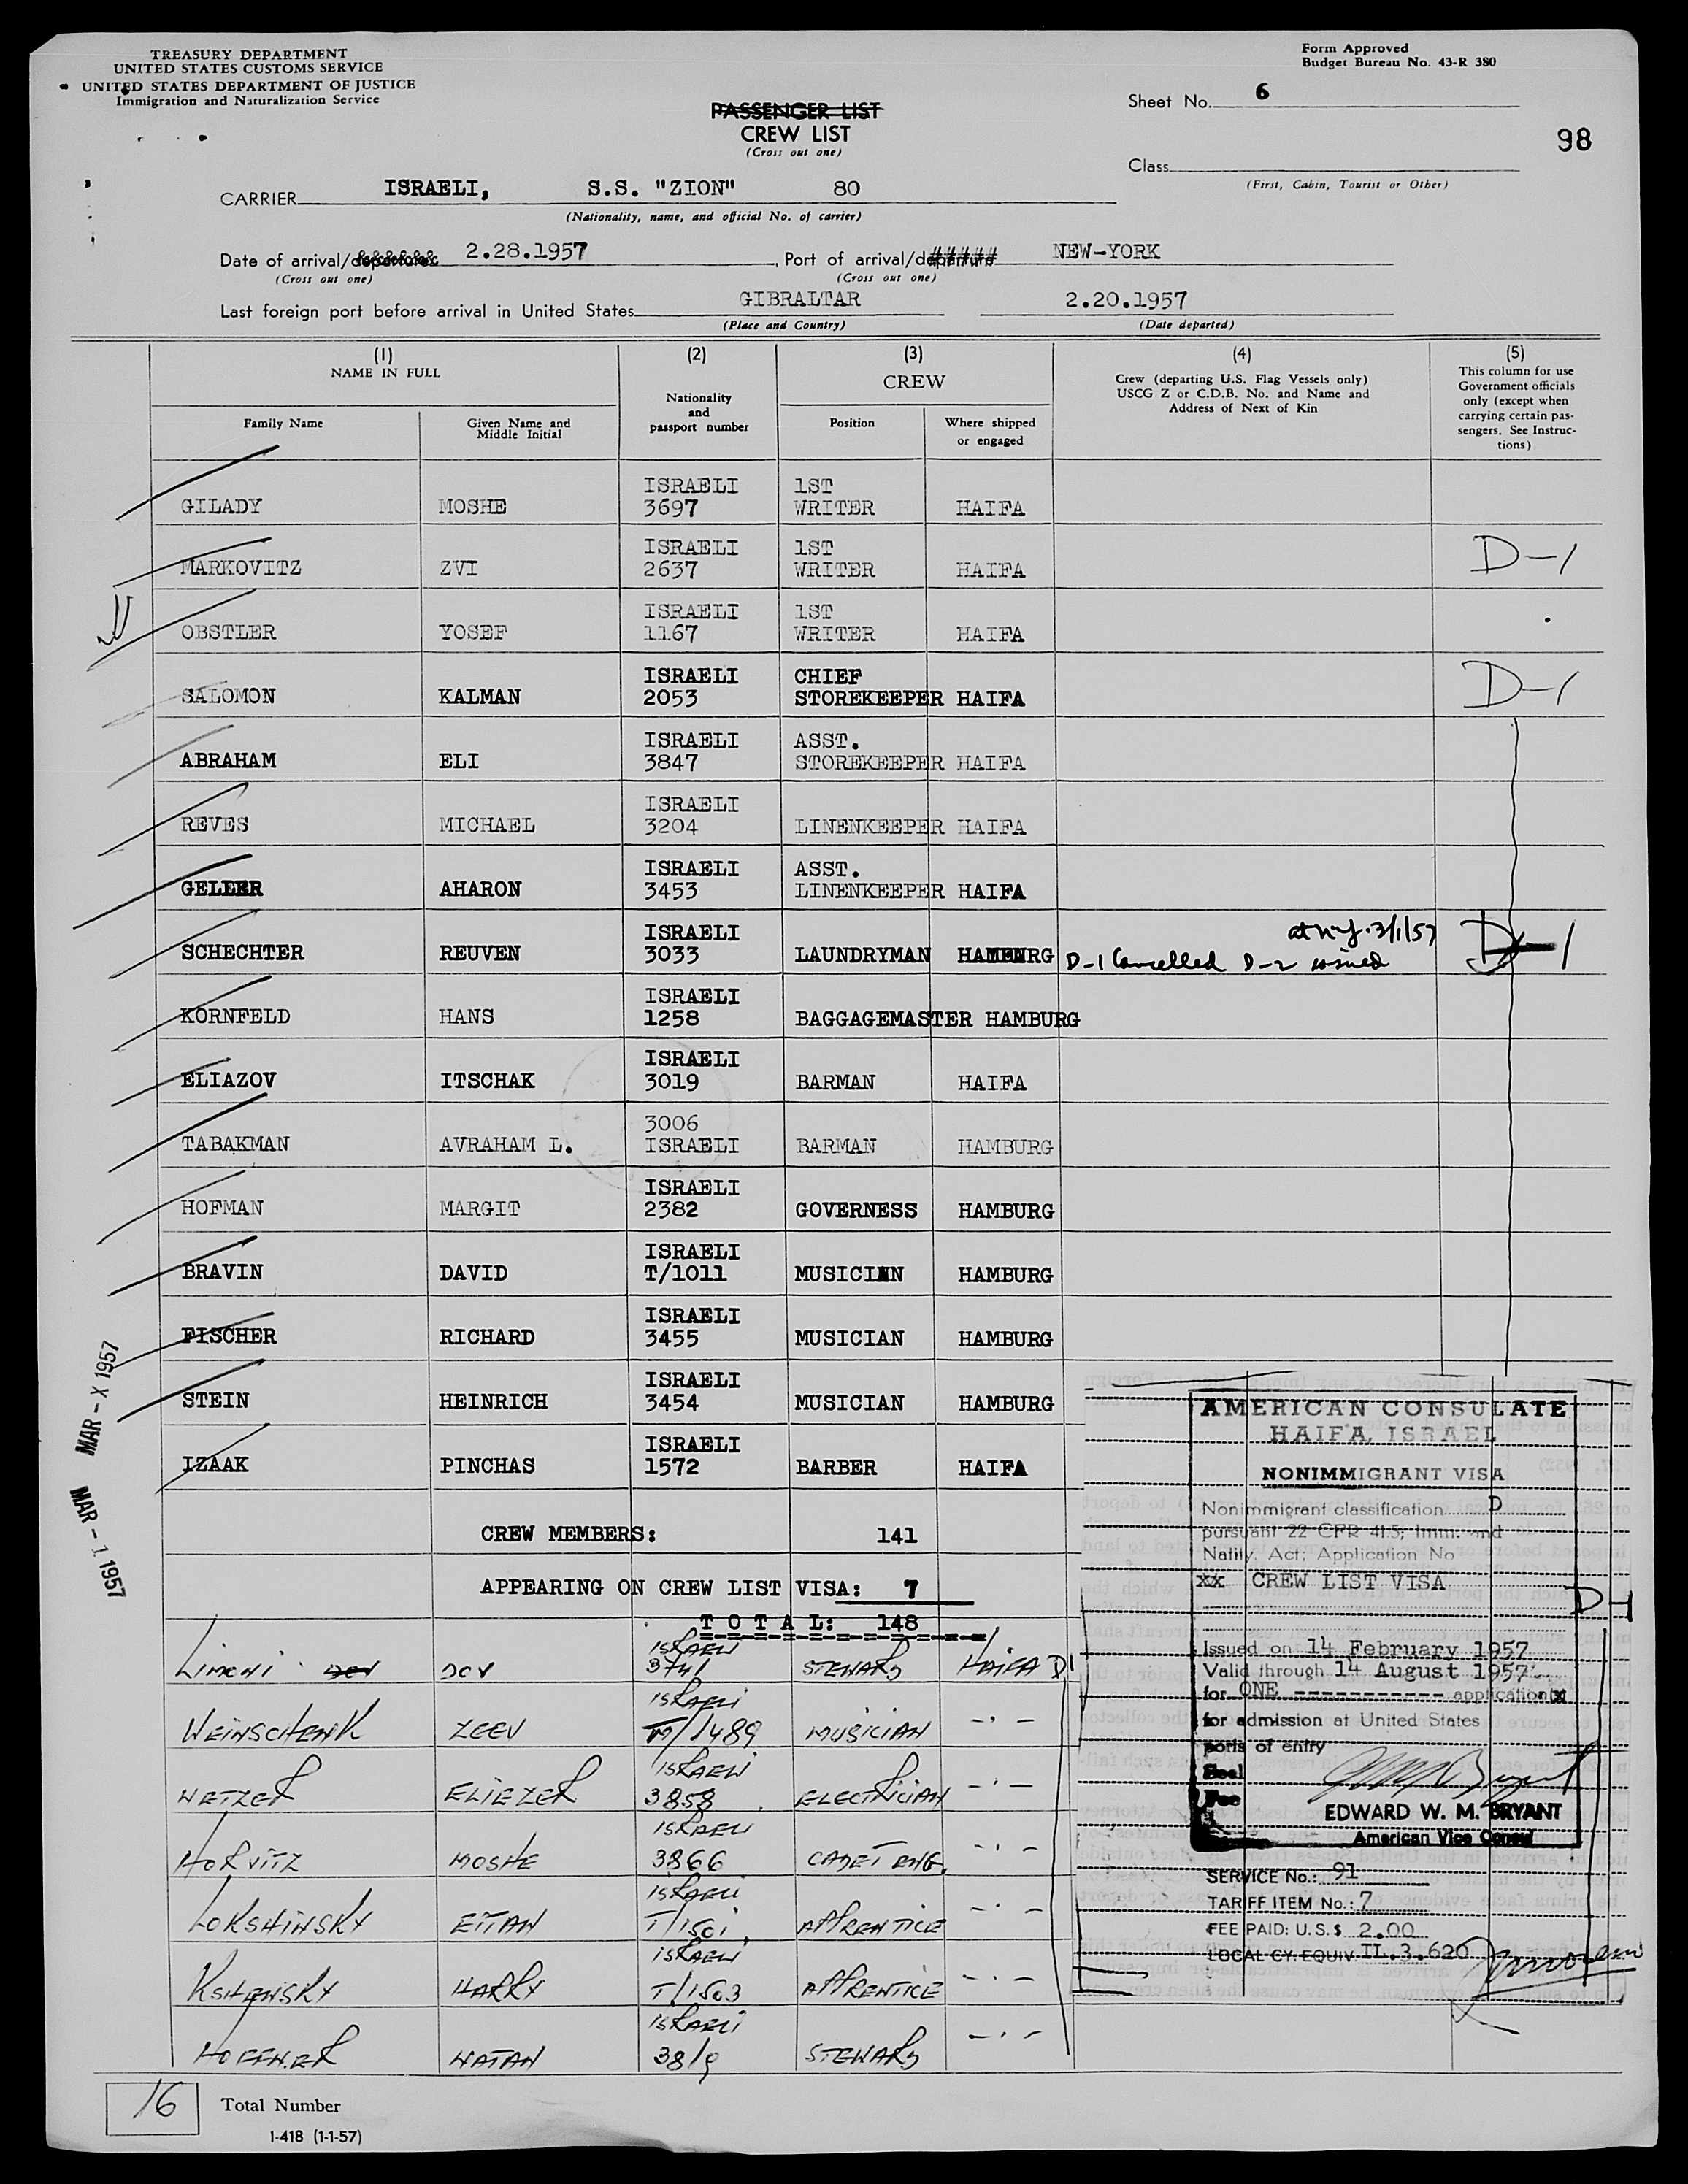 TREASURY DEPARTMENT
UNITED STATES CUSTOMS SERVICE
UNITED STATES DEPARTMENT OF JUSTICE
Immigration and Naturalization Service
Form Approved
Budget Bureau No. 43-R 380
Sheet No. 6
98
PASSENGER LIST
CREW LIST
(Cross out one)
Class
(First, Cabin, Tourist or Other)
CARRIER ISRAELI, S.S. "ZION" 80
(Nationality, name, and official No. of carrier)
Date of arrival/departure 2.28.1957, Port of arrival/departure NEW-YORK
(Cross out one) (Cross out one)
Last foreign port before arrival in United States GIBRALTAR 2.20.1957
(Place and Country) (Date departed)
(1) (2) (3) (4) (5)
NAME IN FULL
Family Name
Given Name and Middle Initial
Nationality and passport number
CREW
Position
Where shipped or engaged
Crew (departing U.S. Flag Vessels only)
USCG Z or C.D.B. No. and Name and
Address of Next of Kin
This column for use
Government officials
only (except when
carrying certain pas-
sengers. See Instruc-
tions)
ISRAELI 1ST
GILADY MOSHE 3697 WRITER HAIFA
ISRAELI 1ST
MARKOVITZ ZVI 2637 WRITER HAIFA D-1
ISRAELI 1ST
OBSTLER YOSEF 1167 WRITER HAIFA
ISRAELI CHIEF
SALOMON KALMAN 2053 STOREKEEPER HAIFA D-1
ISRAELI ASST.
ABRAHAM ELI 3847 STOREKEEPER HAIFA
ISRAELI
REVES MICHAEL 3204 LINENKEEPER HAIFA
ISRAELI ASST.
GELLER AHARON 3453 LINENKEEPER HAIFA
ISRAELI at N.Y. 3/1/57
SCHECHTER REUVEN 3033 LAUNDRYMAN HAMBURG D-1 Cancelled D-2 issued D-1
ISRAELI
KORNFELD HANS 1258 BAGGAGEMASTER HAMBURG
ISRAELI
ELIAZOV ITSCHAK 3019 BARMAN HAIFA
3006
TABAKMAN AVRAHAM L. ISRAELI BARMAN HAMBURG
ISRAELI
HOFMAN MARGIT 2382 GOVERNESS HAMBURG
ISRAELI
BRAVIN DAVID T/1011 MUSICIAN HAMBURG
ISRAELI
FISCHER RICHARD 3455 MUSICIAN HAMBURG
ISRAELI
STEIN HEINRICH 3454 MUSICIAN HAMBURG
ISRAELI
IZAAK PINCHAS 1572 BARBER HAIFA
CREW MEMBERS: 141
APPEARING ON CREW LIST VISA: 7
T O T A L: 148
ISRAELI
LIMONI DOV DOV 3741 STEWARD HAIFA D1
ISRAELI
WEINSCHENK ZEEV T/1489 MUSICIAN -'-
ISRAELI
NETZER ELIEZER 3858 ELECTRICIAN -'-
ISRAELI
HORVITZ MOSHE 3866 CADET ENG. -'-
ISRAELI
LOKSHINSKY EITAN T/1501 APPRENTICE -'-
ISRAELI
KSHENSKY HARRY T/1503 APPRENTICE -'-
ISRAELI
HOFFNER NATAN 3819 STEWARD -'-
MAR - X 1957
MAR - 1 1957
AMERICAN CONSULATE
HAIFA, ISRAEL
NONIMMIGRANT VISA
Nonimmigrant classification D
pursuant 22 CFR 41.5; Imm. and
Natily. Act; Application No
xx CREW LIST VISA
D-1
Issued on 14 February 1957
Valid through 14 August 1957
for ONE ----------- application(x
for admission at United States
ports of entry
Seal
Fee
EDWARD W. M. BRYANT
American Vice Consul
SERVICE No.: 91
TARIFF ITEM No.: 7
FEE PAID: U.S.$ 2.00
LOCAL CY. EQUIV. IL.3.620
16 Total Number
I-418 (1-1-57)